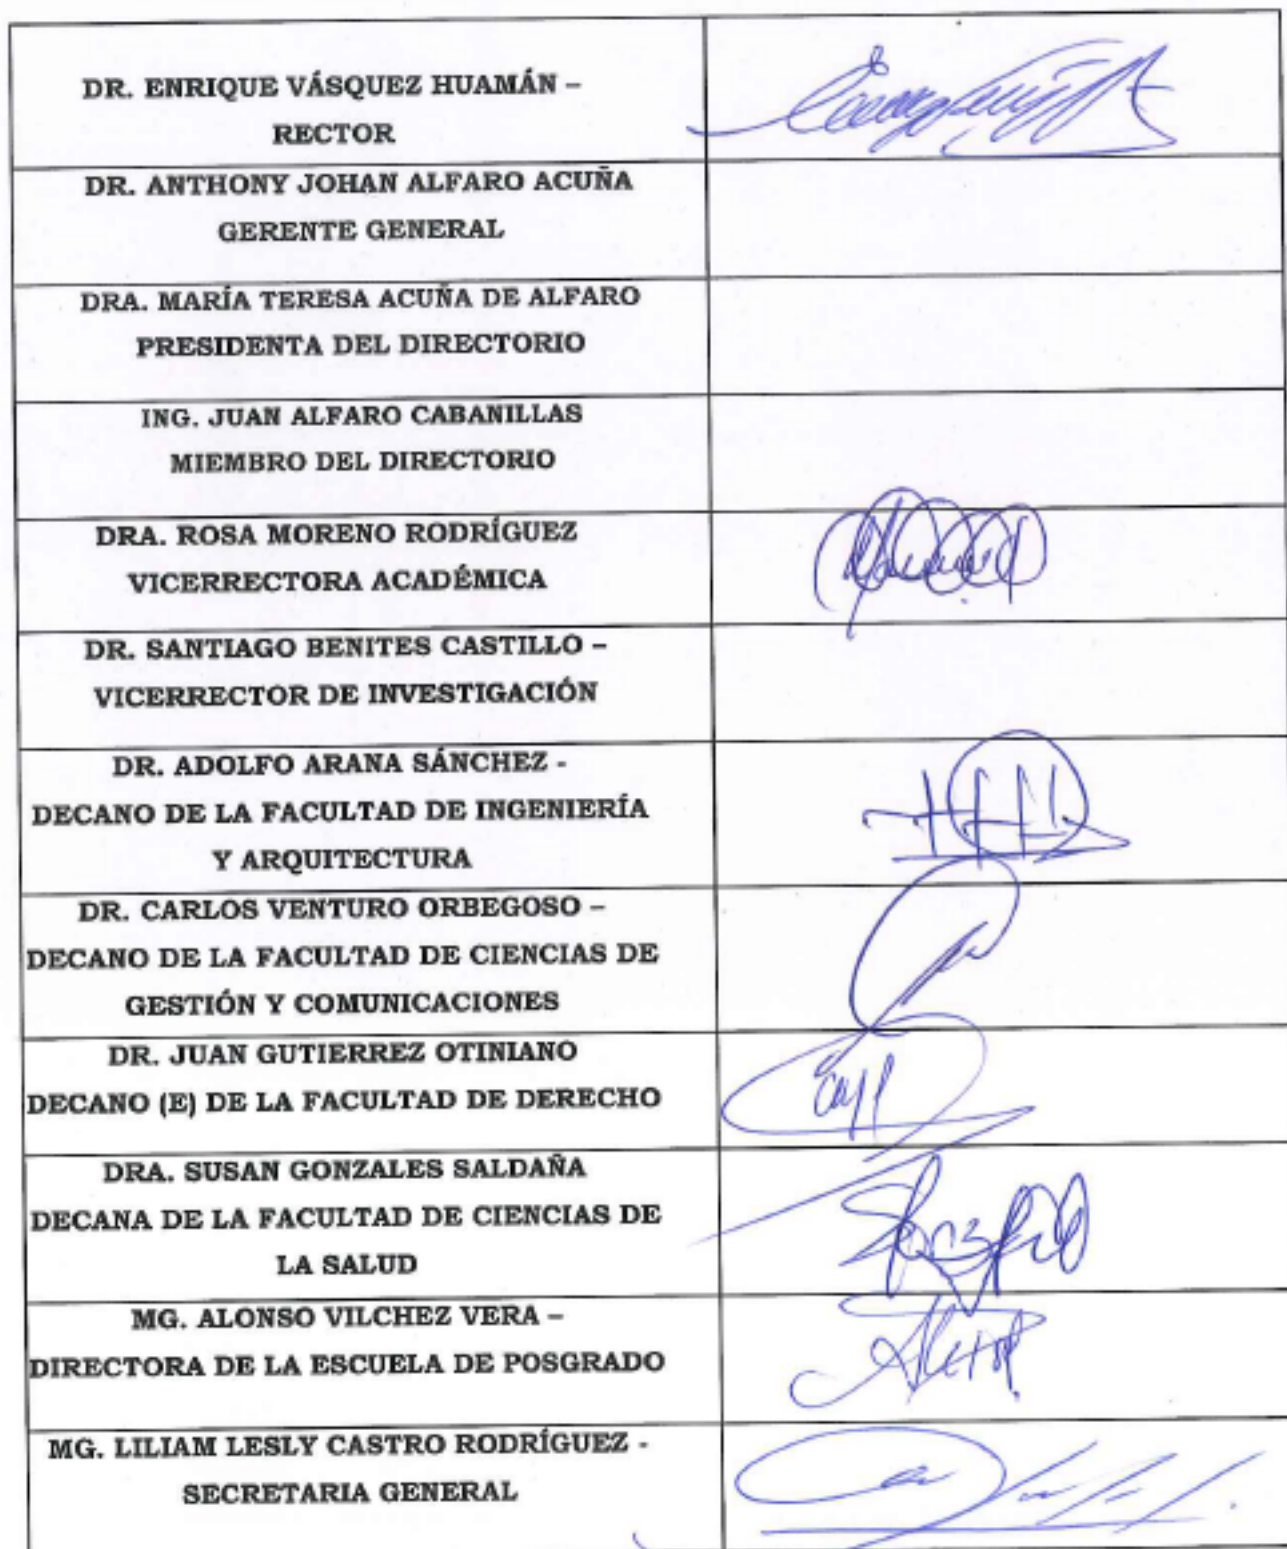 DR. ENRIQUE VÁSQUEZ HUAMÁN –
RECTOR
DR. ANTHONY JOHAN ALFARO ACUÑA
GERENTE GENERAL
DRA. MARÍA TERESA ACUÑA DE ALFARO
PRESIDENTA DEL DIRECTORIO
ING. JUAN ALFARO CABANILLAS
MIEMBRO DEL DIRECTORIO
DRA. ROSA MORENO RODRÍGUEZ
VICERRECTORA ACADÉMICA
DR. SANTIAGO BENITES CASTILLO –
VICERRECTOR DE INVESTIGACIÓN
DR. ADOLFO ARANA SÁNCHEZ -
DECANO DE LA FACULTAD DE INGENIERÍA
Y ARQUITECTURA
DR. CARLOS VENTURO ORBEGOSO –
DECANO DE LA FACULTAD DE CIENCIAS DE
GESTIÓN Y COMUNICACIONES
DR. JUAN GUTIERREZ OTINIANO
DECANO (E) DE LA FACULTAD DE DERECHO
DRA. SUSAN GONZALES SALDAÑA
DECANA DE LA FACULTAD DE CIENCIAS DE
LA SALUD
MG. ALONSO VILCHEZ VERA –
DIRECTORA DE LA ESCUELA DE POSGRADO
MG. LILIAM LESLY CASTRO RODRÍGUEZ -
SECRETARIA GENERAL